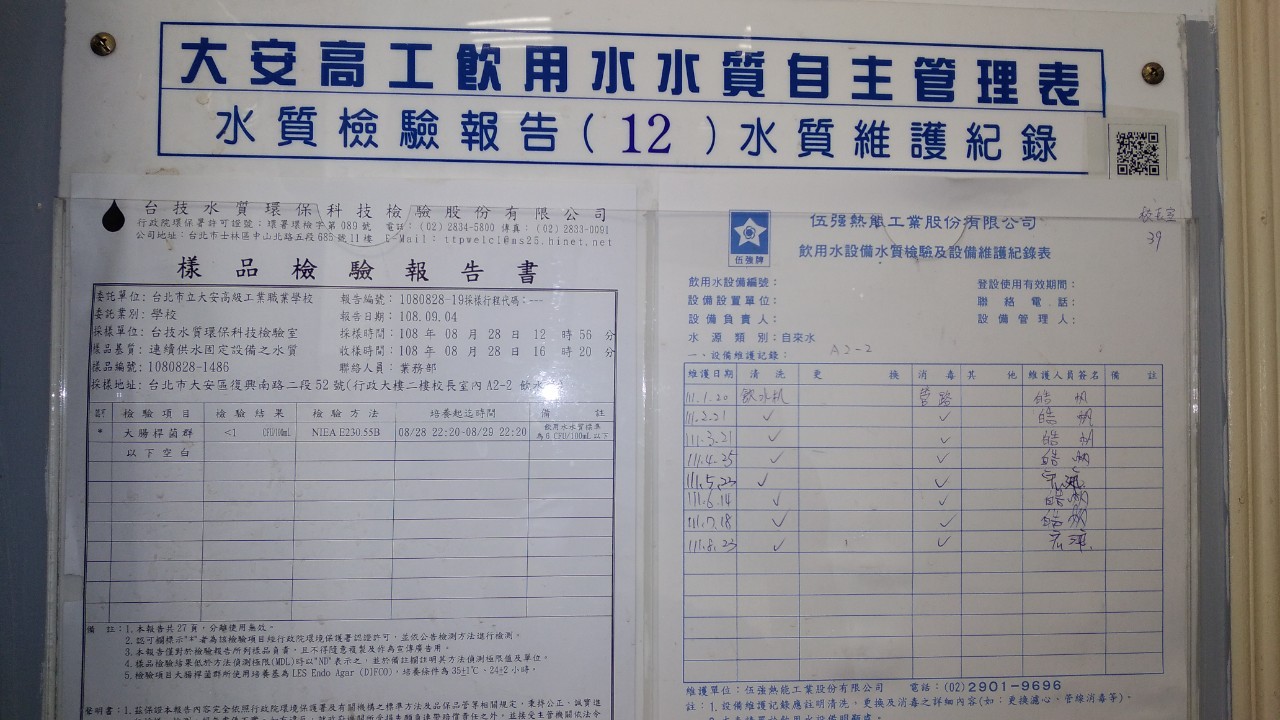 大安高工飲用水水質自主管理表
水質檢驗報告(12)水質維護紀錄
台技水質環保科技檢驗股份有限公司
行政院環保署許可證號：環署環檢字第089號 電話：(02)2834-5800 傳真：(02)2833-0091
公司地址：台北市士林區中山北路五段685號11樓 E-Mail：ttpwelcl@ms25.hinet.net
樣品檢驗報告書
委託單位：台北市立大安高級工業職業學校 報告編號：1080828-19採樣行程代碼：---
委託業別：學校 報告日期：108.09.04
採樣單位：台技水質環保科技檢驗室 採樣時間：108 年 08 月 28 日 12 時 56 分
樣品基質：連續供水固定設備之水質 收樣時間：108 年 08 月 28 日 16 時 20 分
樣品編號：1080828-1486 聯絡人員：業務部
採樣地址：台北市大安區復興南路二段52號(行政大樓二樓校長室內 A2-2
檢驗項目 檢驗結果 檢驗方法 培養起迄時間 備 註
* 大腸桿菌群 <1 CFU/100mL NIEA E230.55B 08/28 22:20-08/29 22:20 飲用水水質標準為6 CFU/100mL 以下
以下空白
備 註：1.本報告共27頁，分離使用無效。
2.認可欄標示"*"者為該檢驗項目經行政院環境保護署認證許可，並依公告檢測方法進行檢測。
3.本報告僅對於檢驗報告所列樣品負責，且不得隨意複製及作為宣傳廣告用。
4.樣品檢驗結果低於方法偵測極限(MDL)時以"ND"表示之，並於備註欄註明其方法偵測極限值及單位。
5.檢驗項目大腸桿菌群所使用培養基為LES Endo Agar (DIFCO)，培養條件為35±1℃、24±2小時。
聲明書：1.茲保證本報告內容完全依照行政院環境保護署及有關機關之標準方法及品保品管等相關規定，秉持公正、誠實進
伍強牌
伍強熱能工業股份有限公司
飲用水設備水質檢驗及設備維護紀錄表
校長室
39
飲用水設備編號： 登設使用有效期間：
設備設置單位： 聯絡電話：
設備負責人： 設備管理人：
水源類別：自來水
一、設備維護記錄： A2-2
維護日期 清洗 更換 消毒 其他 維護人員簽名 備註
111.1.20 飲水机 管路 皓帆
111.2.21 ✓ ✓ 皓帆
111.3.21 ✓ ✓ 皓帆
111.4.25 ✓ ✓ 皓帆
111.5.23 ✓ ✓
111.6.14 ✓ ✓ 皓帆
111.7.18 ✓ ✓ 皓帆
111.8.23 ✓ ✓
維護單位：伍強熱能工業股份有限公司 電話：(02)2901-9696
註：1.設備維護記錄應註明清洗、更換及消毒之詳細內容(如：更換濾心、管線消毒等)。